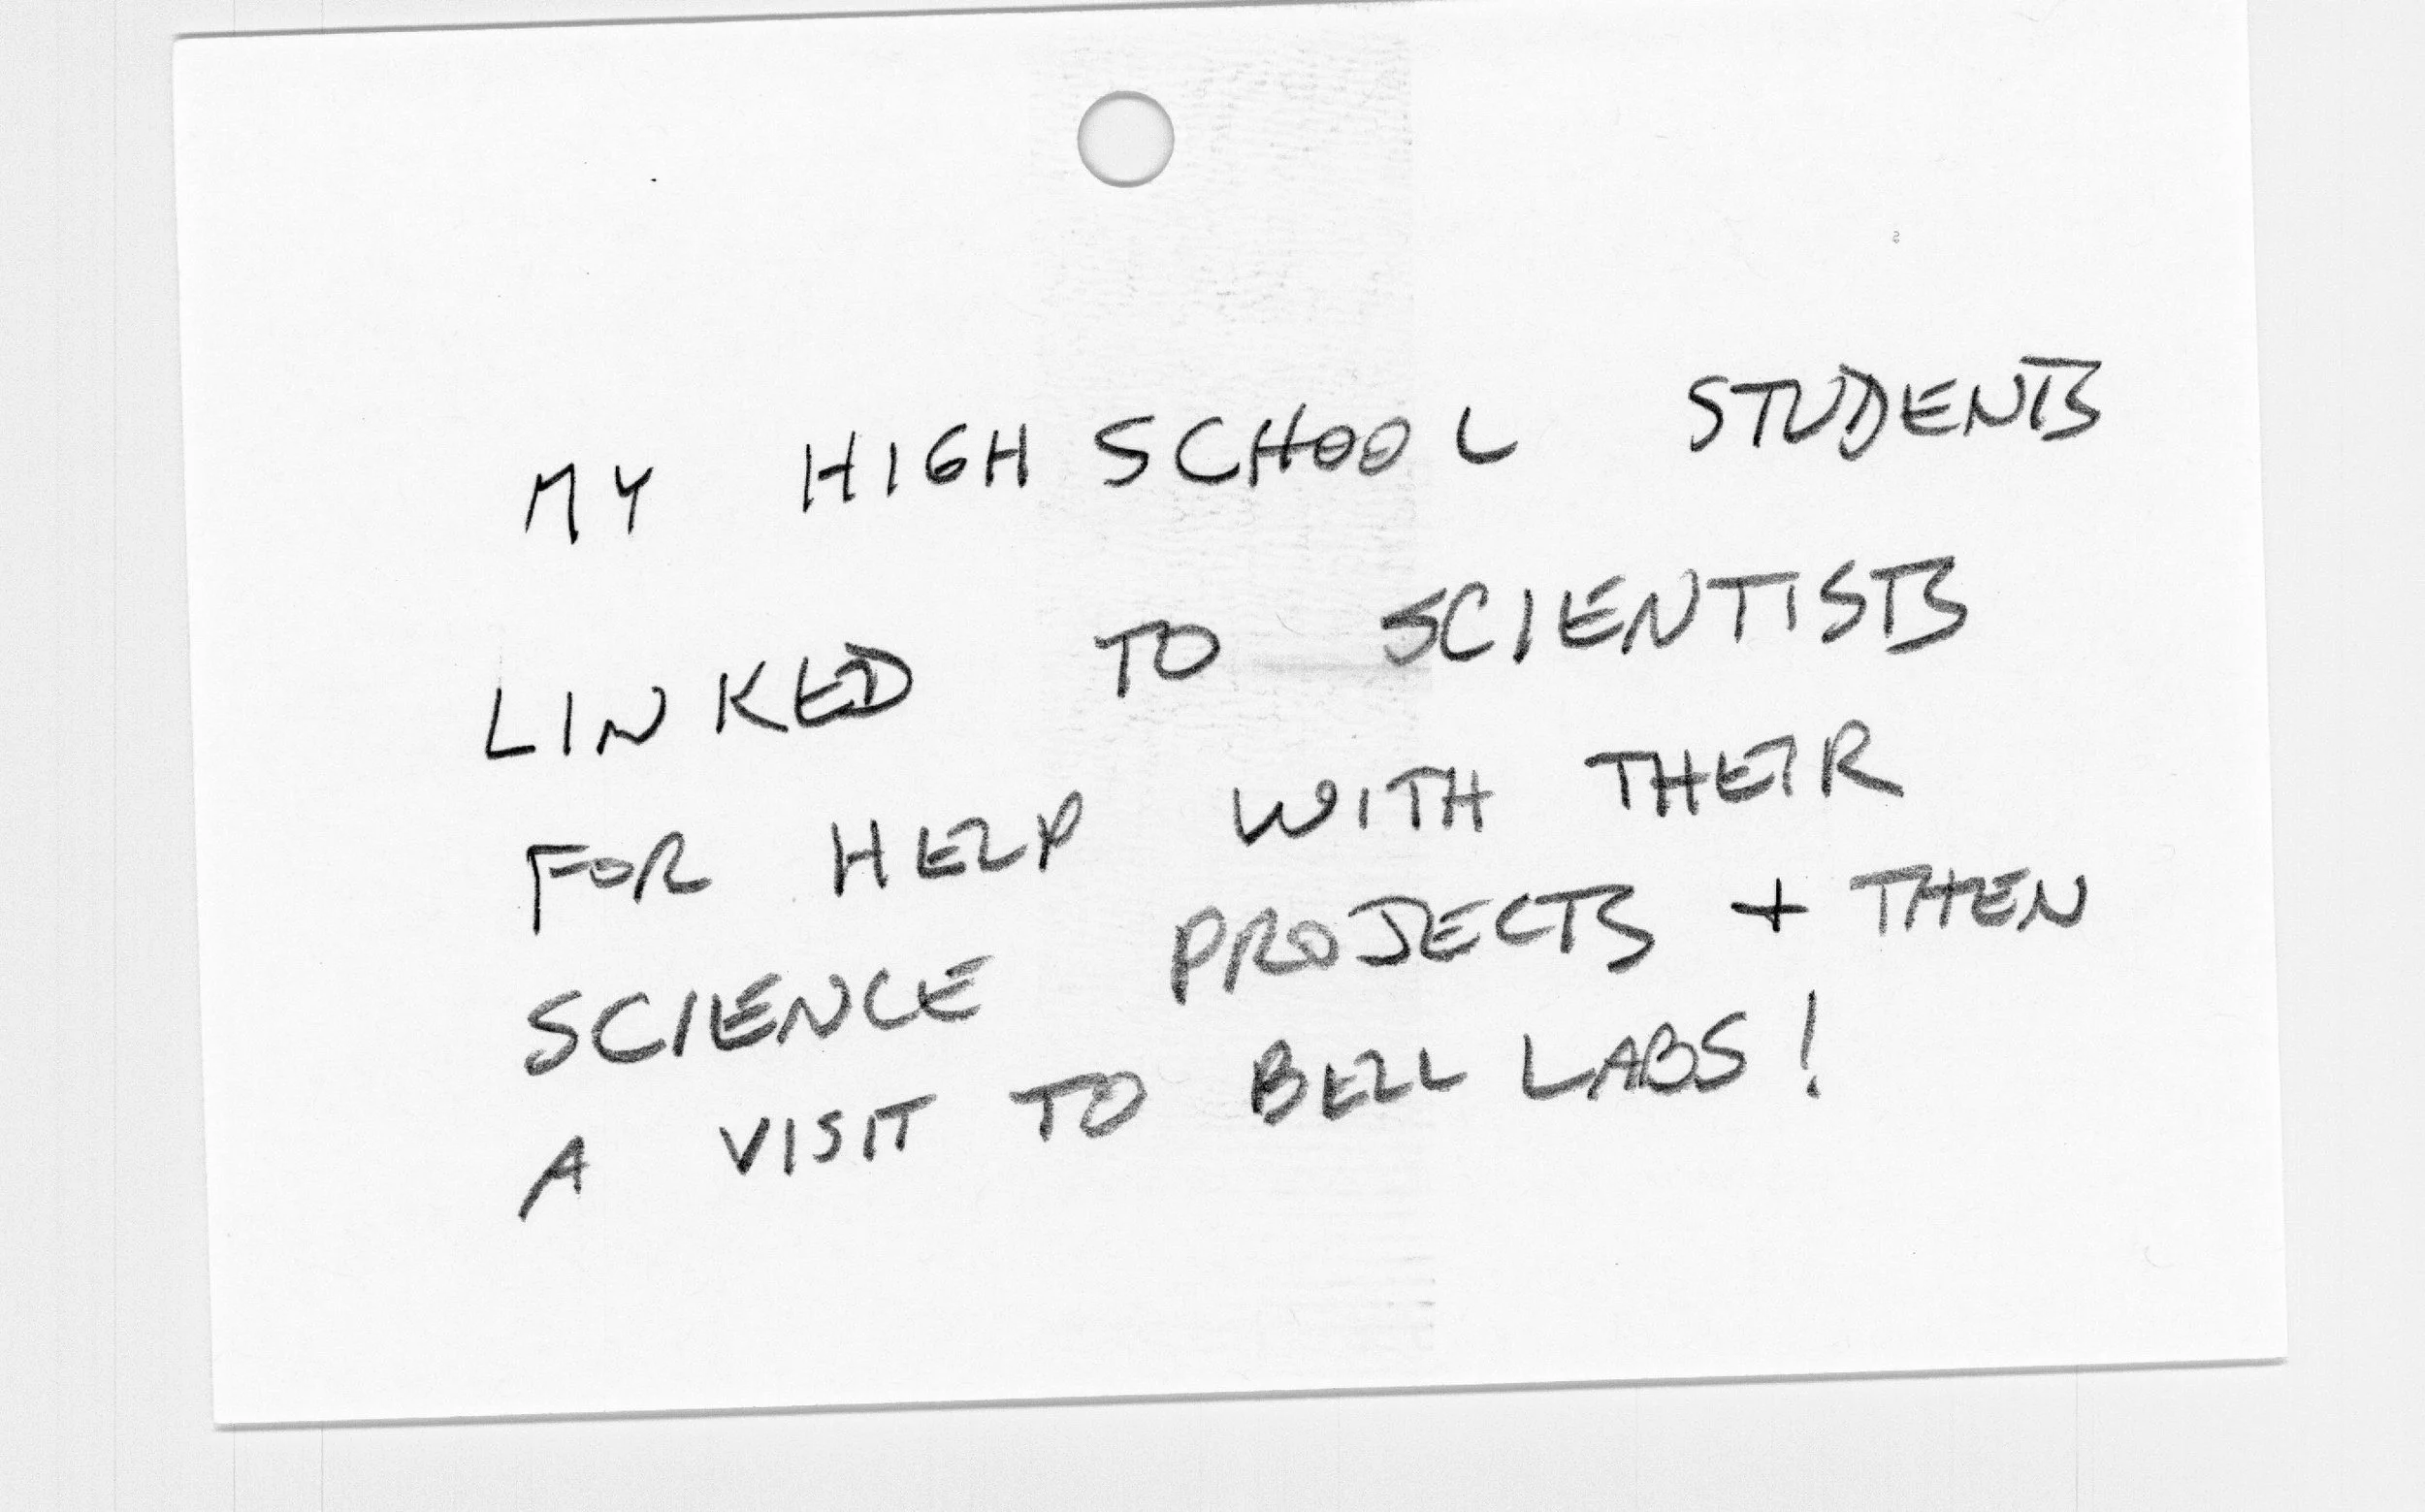 MY HIGH SCHOOL STUDENTS
LINKED TO SCIENTISTS
FOR HELP WITH THEIR
SCIENCE PROJECTS + THEN
A VISIT TO BELL LABS!